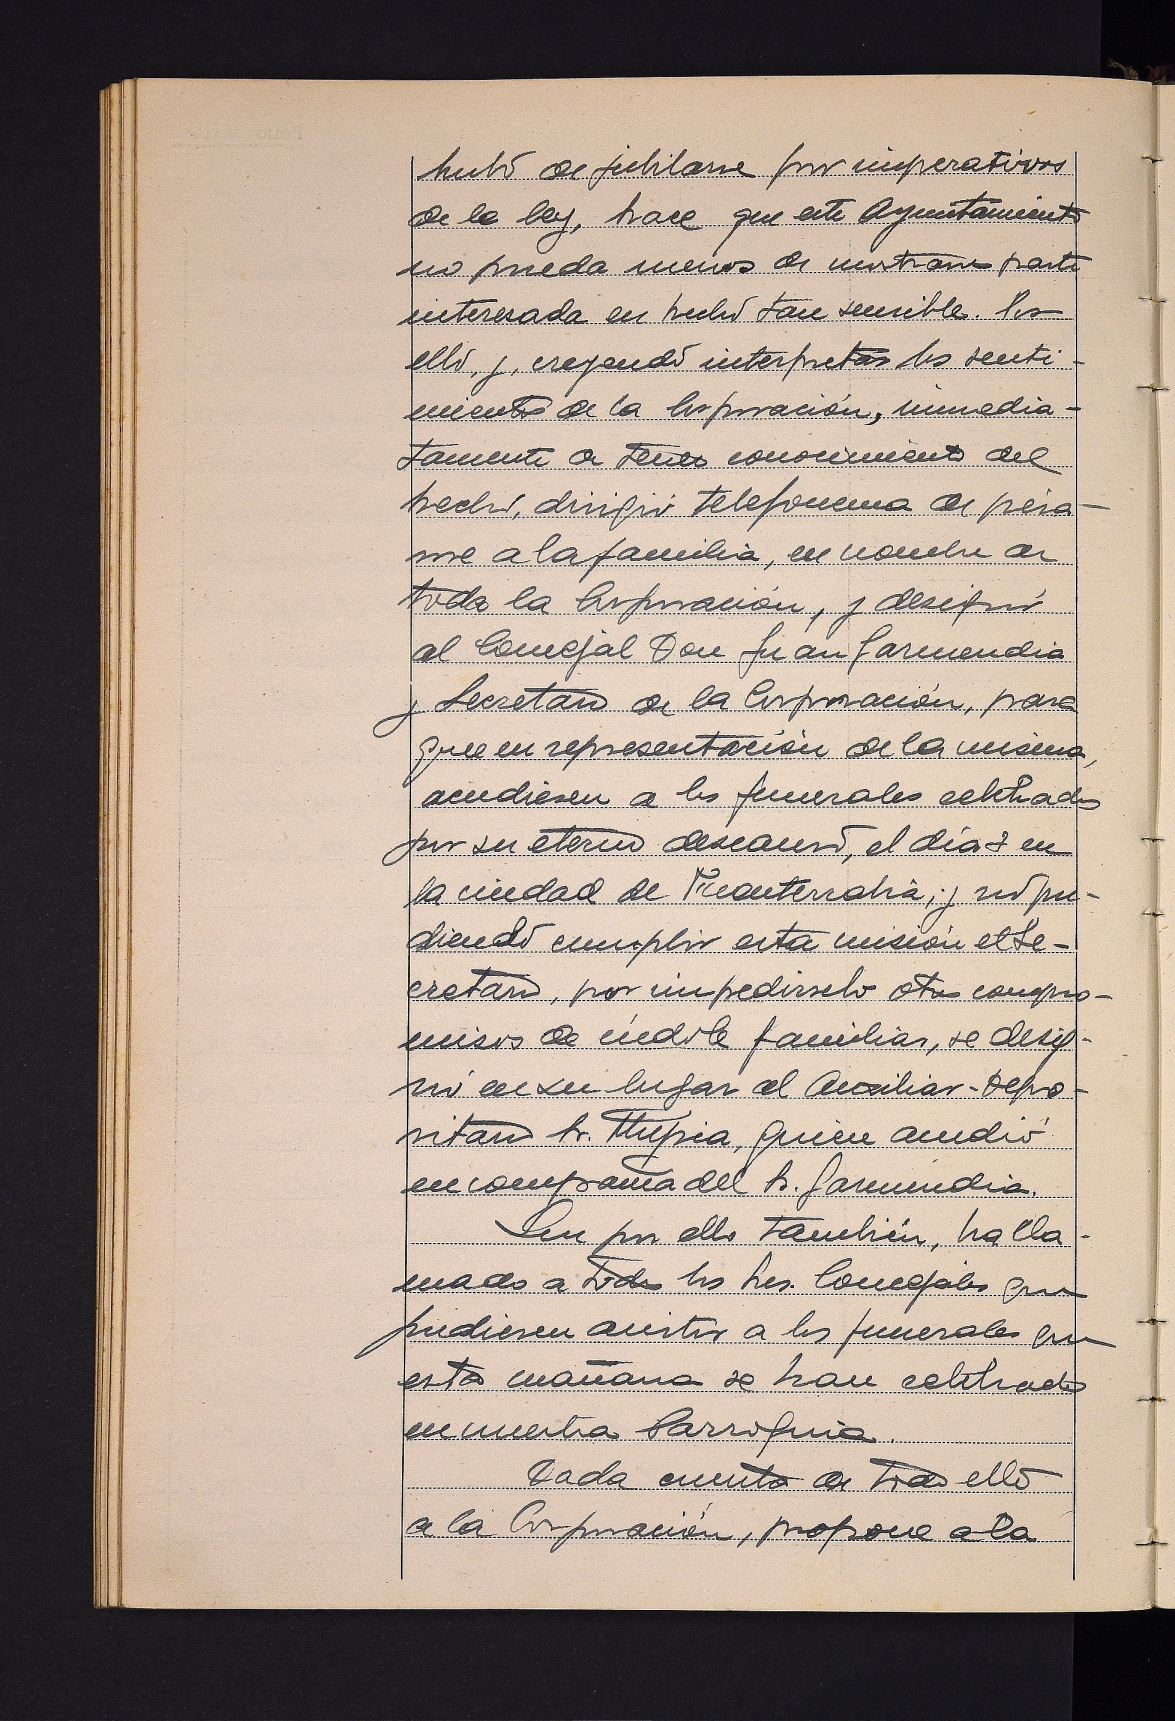 hubo de jubilarse por imperativos
de la ley, hace que este Ayuntamiento
no pueda menos de mostrarse parte
interesada en hecho tan sensible. Por
ello, y, creyendo interpretar los senti-
mientos de la Corporación, inmedia-
tamente de tener conocimiento del
hecho, dirigió telefonema de pésa-
me a la familia, en nombre de
toda la Corporación, y designó
al Concejal Don Juan Garmendia
y Secretario de la Corporación, para
que en representación de la misma,
acudiesen a los funerales celebrados
por su eterno descanso, el día 7 en
la ciudad de Fuenterrabía; y no pu-
diendo cumplir esta misión el Se-
cretario, por impedírselo otros compro-
misos de índole familiar, se desig-
nó en su lugar al Auxiliar-Depo-
sitario Sr. Mugica, quien acudió
en compañía del Sr. Garmendia.
por ello también, ha lla-
mado a todos los Sres. Concejales que
pudiesen asistir a los funerales que
esta mañana se han celebrado
en nuestra Parroquia.
Dada cuenta de todo ello
a la Corporación, propone a la